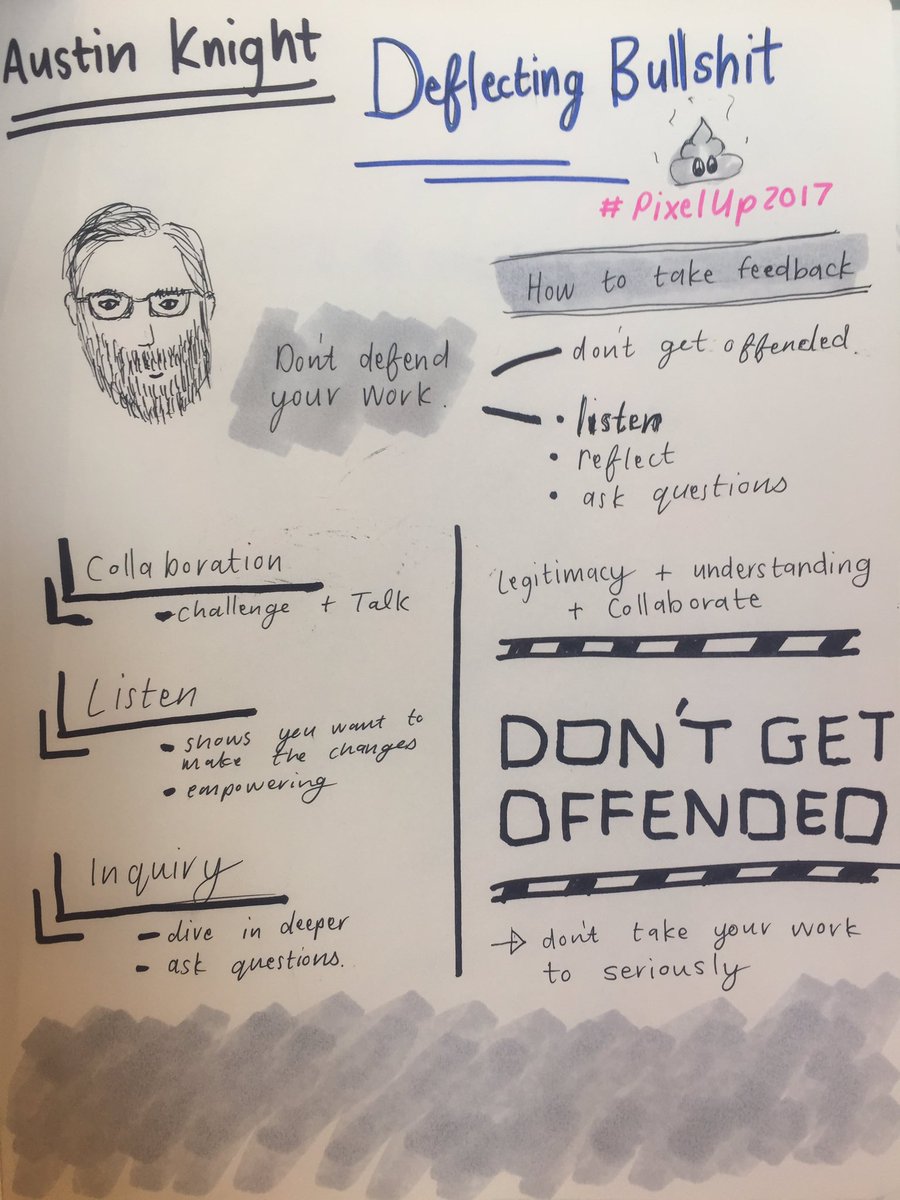 Austin Knight
Deflecting Bullshit
#PixelUp2017
How to take feedback
Don't defend
your work.
don't get offended.
• listen
• reflect
• ask questions
Collaboration
- challenge + Talk
Listen
• shows you want to
make the changes
• empowering
Inquiry
- dive in deeper
- ask questions.
Legitimacy + understanding
+ Collaborate
DON'T GET
OFFENDED
→ don't take your work
to seriously